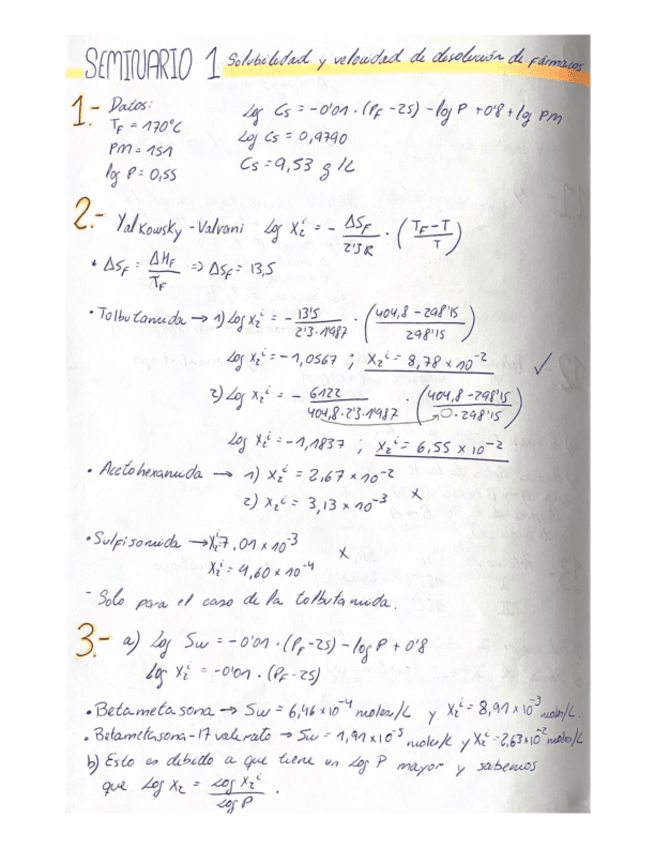 SEMINARIO 1 Solubilidad y velocidad de disolución de fármacos
1.- Datos:
TF = 170ºC
PM = 151
log P = 0,55
Log Cs = -0'01 · (PF - 25) - log P + 0'8 + lg PM
Log Cs = 0,9790
Cs = 9,53 g/L
2.- Yalkowsky - Valvani Log X₂ⁱ = - ΔSF / 2'3R · (TF - T / T)
• ΔSF = ΔHF / TF => ΔSF = 13,5
• Tolbutamida → 1) Log X₂ⁱ = - 13'5 / 2'3·1'987 · (404,8 - 298'15 / 298'15)
Log X₂ⁱ = -1,0567 ; X₂ⁱ = 8,78 x 10⁻² ✓
2) Log X₂ⁱ = - 6122 / 404,8·2'3·1'987 · (404,8 - 298'15 / 298'15)
Log X₂ⁱ = -1,1837 ; X₂ⁱ = 6,55 x 10⁻²
• Acetohexamida → 1) X₂ⁱ = 2,67 x 10⁻²
2) X₂ⁱ = 3,13 x 10⁻³ X
• Sulfisomida → X₂ⁱ 7,01 x 10⁻³
X₂ⁱ = 4,60 x 10⁻⁴ X
- Solo para el caso de la tolbutamida.
3.- a) Log Sw = -0'01 · (PF - 25) - log P + 0'8
Log X₂ⁱ = -0'01 · (PF - 25)
• Betametasona → Sw = 6,46 x 10⁻⁴ moles/L y X₂ⁱ = 8,91 x 10⁻³ moles/L
• Betametasona-17 valerato → Sw = 1,91 x 10⁻⁵ moles/L y X₂ⁱ = 2,63 x 10⁻² moles/L
b) Esto es debido a que tiene un Log P mayor y sabemos
que Log X₂ = Log X₂ⁱ / Log P .